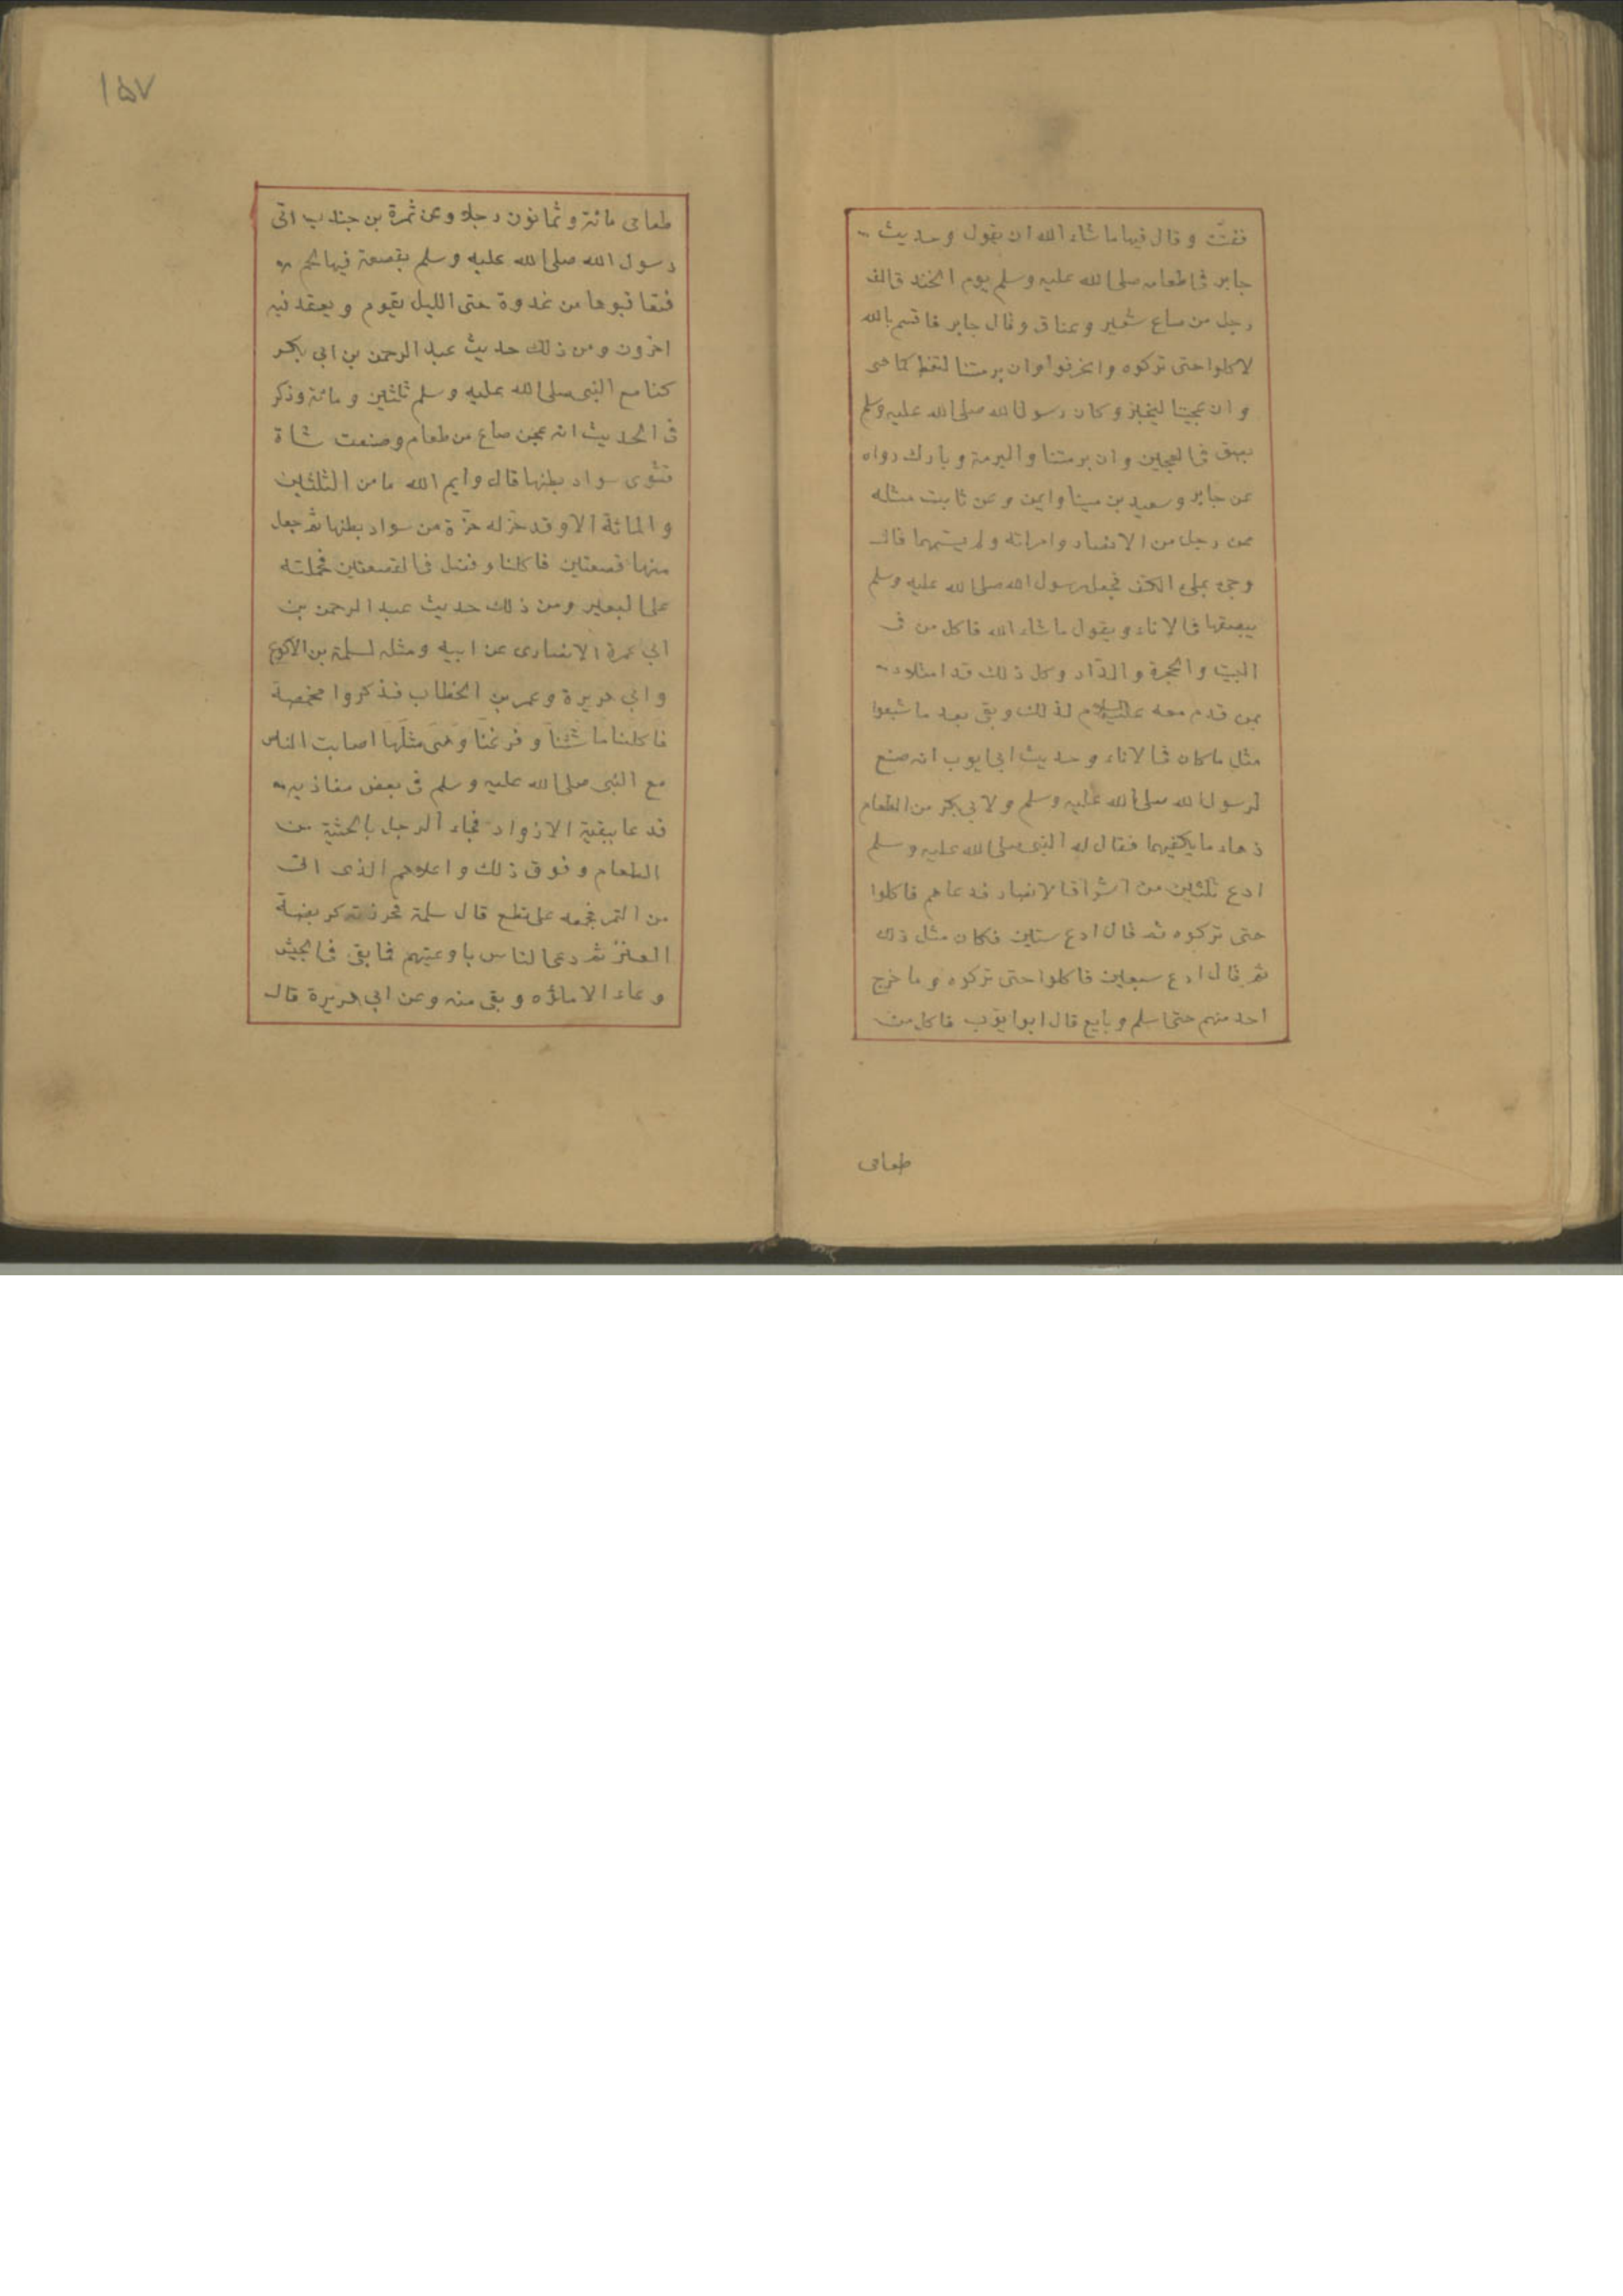 ففتّت وقال فيها ما شاء الله ان يقول وحديث
جابر فى اطعامه صلى الله عليه وسلم يوم الخندق الف
رجل من صاع شعير وعناق وقال جابر فاقسم بالله
لاكلوا حتى تركوه وانحرفوا وان برمتنا لتغط كما هى
وان عجيننا ليخبز وكان رسول الله صلى الله عليه وسلم
بصق فى العجين وان برمتنا والبرمة وبارك رواه
عن جابر وسعيد بن مينا وايمن وعن ثابت مثله
عن رجل من الانصار وامراته ولم يسمهما قال
وجئ بملء الكف فجعل رسول الله صلى الله عليه وسلم
يبصقها فى الاناء ويقول ما شاء الله فاكل من فى
البيت والحجرة والدّار وكل ذلك قد امتلاء
ممن قدم معه عليه السلام لذلك وبقى بعد ما شبعوا
مثل ما كان فى الاناء وحديث ابى ايوب انه صنع
لرسول الله صلى الله عليه وسلم ولابى بكر من الطعام
زهاء ما يكفيهما فقال له النبى صلى الله عليه وسلم
ادع ثلثين من اشراف الانصار فدعاهم فاكلوا
حتى تركوه ثم قال ادع ستين فكان مثل ذلك
ثم قال ادع سبعين فاكلوا حتى تركوه وما خرج
احد منهم حتى اسلم وبايع قال ابو ايوب فاكل من
طعامى
١٥٧
طعامى مائة وثمانون رجلا وعن ثمرة بن جندب اتى
رسول الله صلى الله عليه وسلم بقصعة فيها لحم
فتعاقبوها من غدوة حتى الليل يقوم ويعقد فيه
اخرون ومن ذلك حديث عبد الرحمن بن ابى بكر
كنا مع النبى صلى الله عليه وسلم ثلثين ومائة وذكر
فى الحديث انه عجن صاع من طعام وصنعت شاة
فشوى سواد بطنها قال وايم الله ما من الثلثين
والمائة الا وقد حزّ له حزّة من سواد بطنها ثم جعل
منها قصعتين فاكلنا وفضل فى القصعتين فحملته
على البعير ومن ذلك حديث عبد الرحمن بن
ابى عمرة الانصارى عن ابيه ومثله لسلمة بن الاكوع
وابى هريرة وعمر بن الخطاب فذكروا مخمصة
فاكلنا ما شئنا وفرغنا وهى مثلها اصابت الناس
مع النبى صلى الله عليه وسلم فى بعض مغازيه
فدعا ببقية الازواد فجاء الرجل بالحثية من
الطعام وفوق ذلك واعلاهم الذى اتى
من التمر فجمعه على نطع قال سلمة فحرزته كربضة
العنز ثم دعى الناس باوعيتهم فما بقى فى الجيش
وعاء الا ملؤه وبقى منه وعن ابى هريرة قال